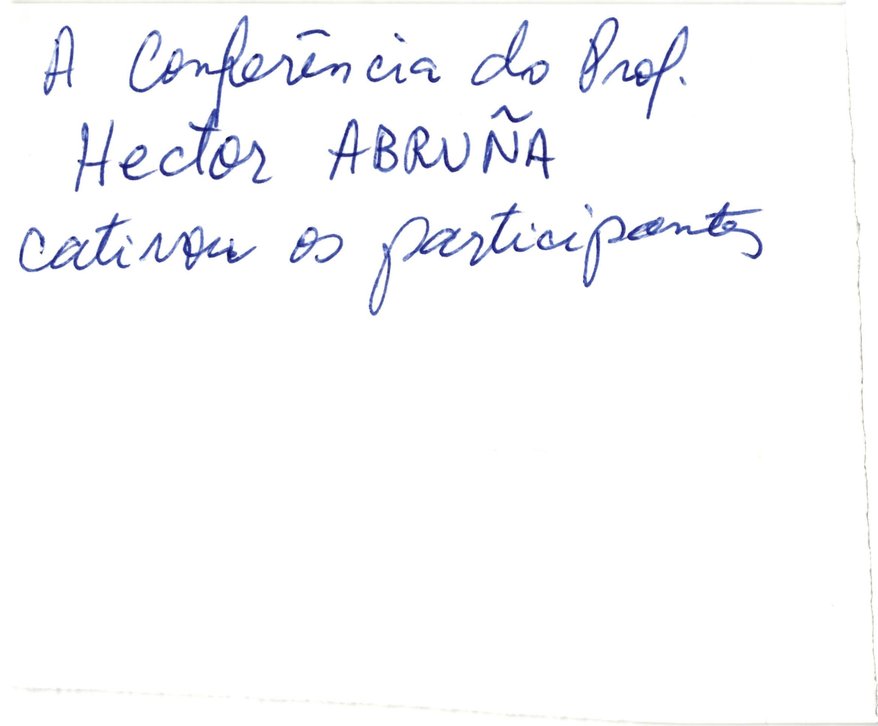 A Conferência do Prof.
Hector ABRUÑA
cativou os participantes